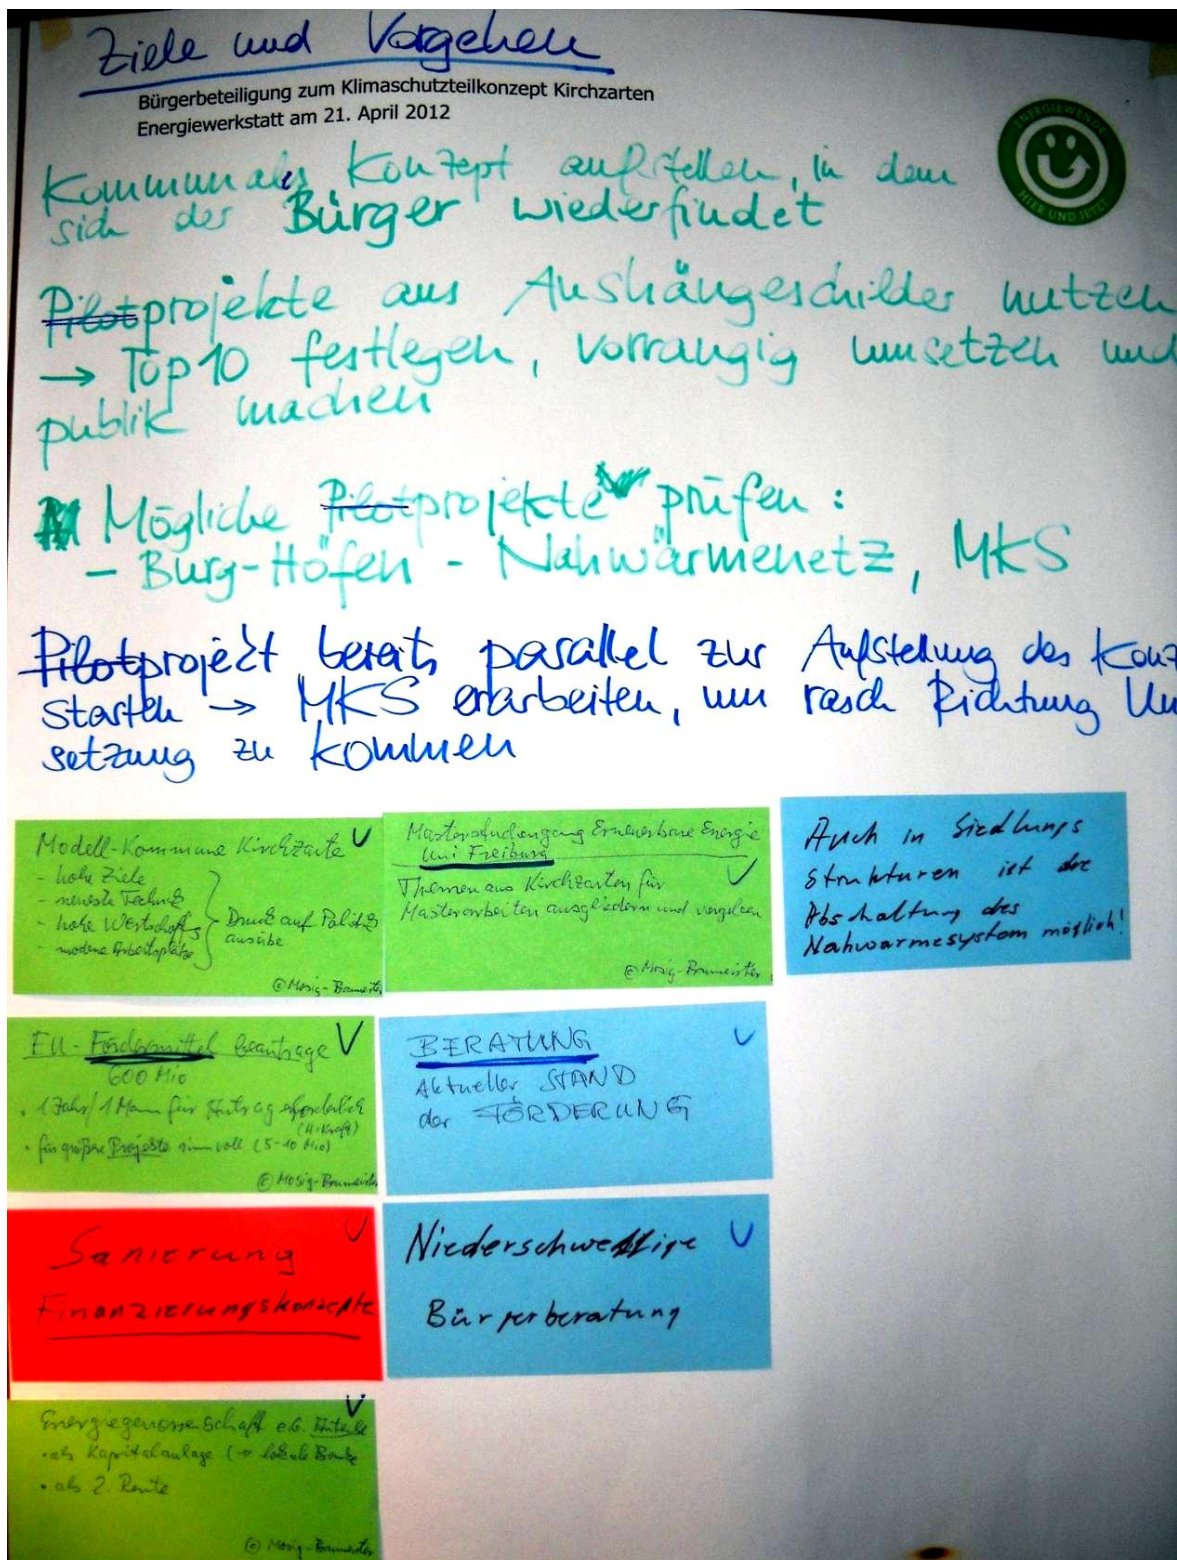 Ziele und Vorgehen
Bürgerbeteiligung zum Klimaschutzteilkonzept Kirchzarten
Energiewerkstatt am 21. April 2012
ENERGIEWENDE
HIER UND JETZT
Kommunales Konzept aufstellen, in dem
sich der Bürger wiederfindet
Pilotprojekte aus Aushängeschilder nutzen
→ Top 10 festlegen, vorrangig umsetzen und
publik machen
Mögliche Pilotprojekte prüfen:
- Burg-Höfen - Nahwärmenetz, MKS
Pilotproject bereits parallel zur Aufstellung des Konz
starten → MKS erarbeiten, um rasch Richtung Um
setzung zu kommen
Modell-Kommune Kirchzarte
- hohe Ziele
- neueste Technik
- hohe Wertschöpfg
- moderne Arbeitsplätze
Druck auf Politik
ausübe
© Mosig-Baumeister
Masterstudiengang Erneuerbare Energie
Uni Freiburg
Themen aus Kirchzarten für
Masterarbeiten ausgliedern und vergeben
© Mosig-Baumeister
Auch in Siedlungs
strukturen ist die
Abschaltung des
Nahwärmesystem möglich!
EU-Fördermittel beantrage
600 Mio
• 1 Jahr/1 Mann für Antrag erforderlich
• für größere Projekte sinnvoll (5-10 Mio)
© Mosig-Baumeister
BERATUNG
Aktueller STAND
der FÖRDERUNG
Sanierung
Finanzierungskonzepte
Niederschwellige
Bürgerberatung
Energiegenossenschaft e.G.
• als Kapitalanlage (→ lokale
• als 2. Rente
© Mosig-Baumeister